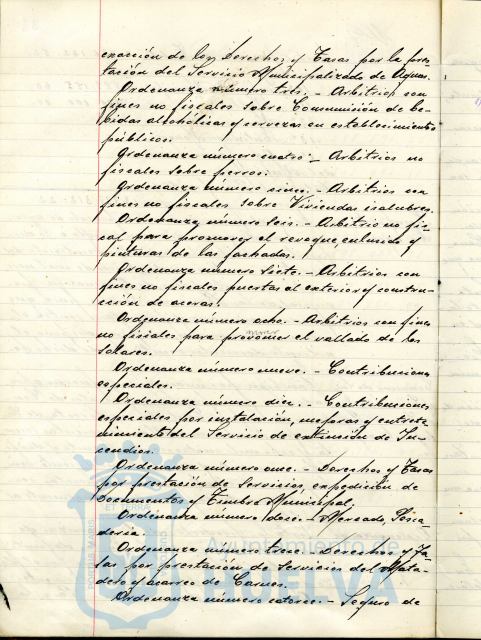 enacción de los Derechos y Tasas por la pres-
tación del Servicio Municipalizado de Aguas.
Ordenanza número tres. - Arbitrios con
fines no fiscales sobre Consumisión de be-
bidas alcohólicas y cervezas en establecimientos
públicos.
Ordenanza número cuatro - Arbitrios no
fiscales sobre perros.
Ordenanza número cinco. - Arbitrios con
fines no fiscales sobre Viviendas insalubres.
Ordenanza número Seis. - Arbitrio no fis-
cal para promover el revoque, enlucido y
pinturas de las fachadas.
Ordenanza número Siete. - Arbitrios con
fines no fiscales puertas al exterior y construc-
cción de aceras.
Ordenanza número ocho. - Arbitrios con fines
no fiscales para promover el vallado de los
Solares.
Ordenanza número nueve. - Contribuciones
especiales.
Ordenanza número diez. - Contribuciones
especiales por instalación, mejoras y entrete-
nimiento del Servicio de extinción de In-
cendios.
Ordenanza número once. - Derechos y Tasas
por prestación de Servicios, expedición de
Documentos y Timbre Municipal.
Ordenanza número doce. - Mercado, Pesca-
dería.
Ordenanza número trece. - Derechos y Ta-
sas por prestación de Servicios del Mata-
dero y acarreo de Carnes.
Ordenanza número catorce. - Seguro de
Ayuntamiento de
HUELVA